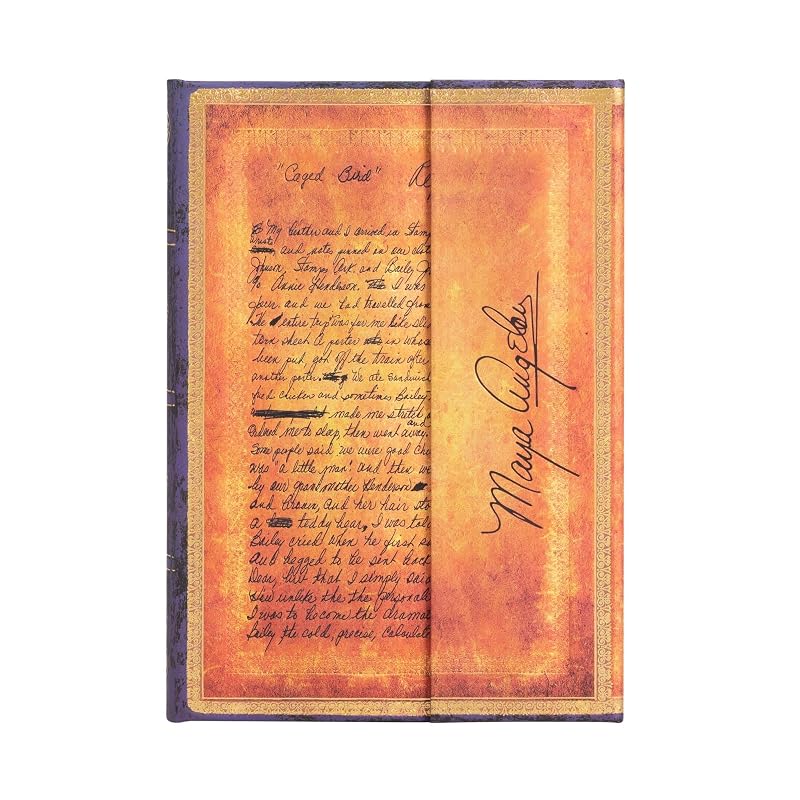 "Caged Bird" Re
My brother and I arrived in Stam
wrists and notes pinned on our clot
Johnson, Stamps Ark. and Bailey Jo
% Annie Henderson. I was
year and we had travelled from
The entire trip was for me like sle
torn sheet. A porter in whose
been put, got off the train after
another porter. We ate sandwich
fried chicken and sometimes Bailey
made me stretch o
and
me to sleep, then went away
Some people said we were good Che
was "a little man" and then we
by our grandmother Henderson
and brown, and her hair sto
a teddy bear, I was told
Bailey cried when he first sa
and begged to be sent back
Dear, but that I simply said
How unlike the the personali
I was to become the dramat
Bailey the cold, precise, calculate
Maya Angelou